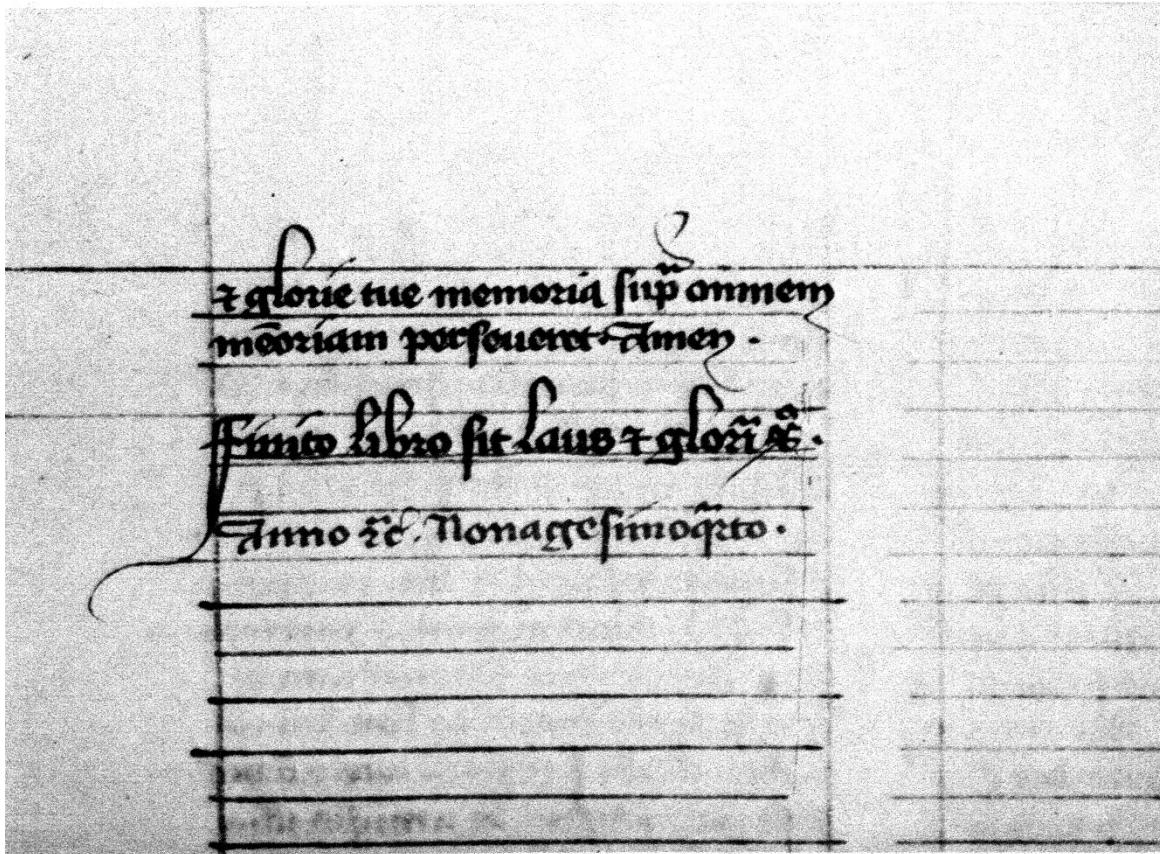 ⁊ glorie tue memoria sup̄ omnem
mēoriam perseueret · Amen ·
Ffinito libro sit laus ⁊ glori̅a ·
Anno ⁊c̄ . Nonagesimoqͣrto ·